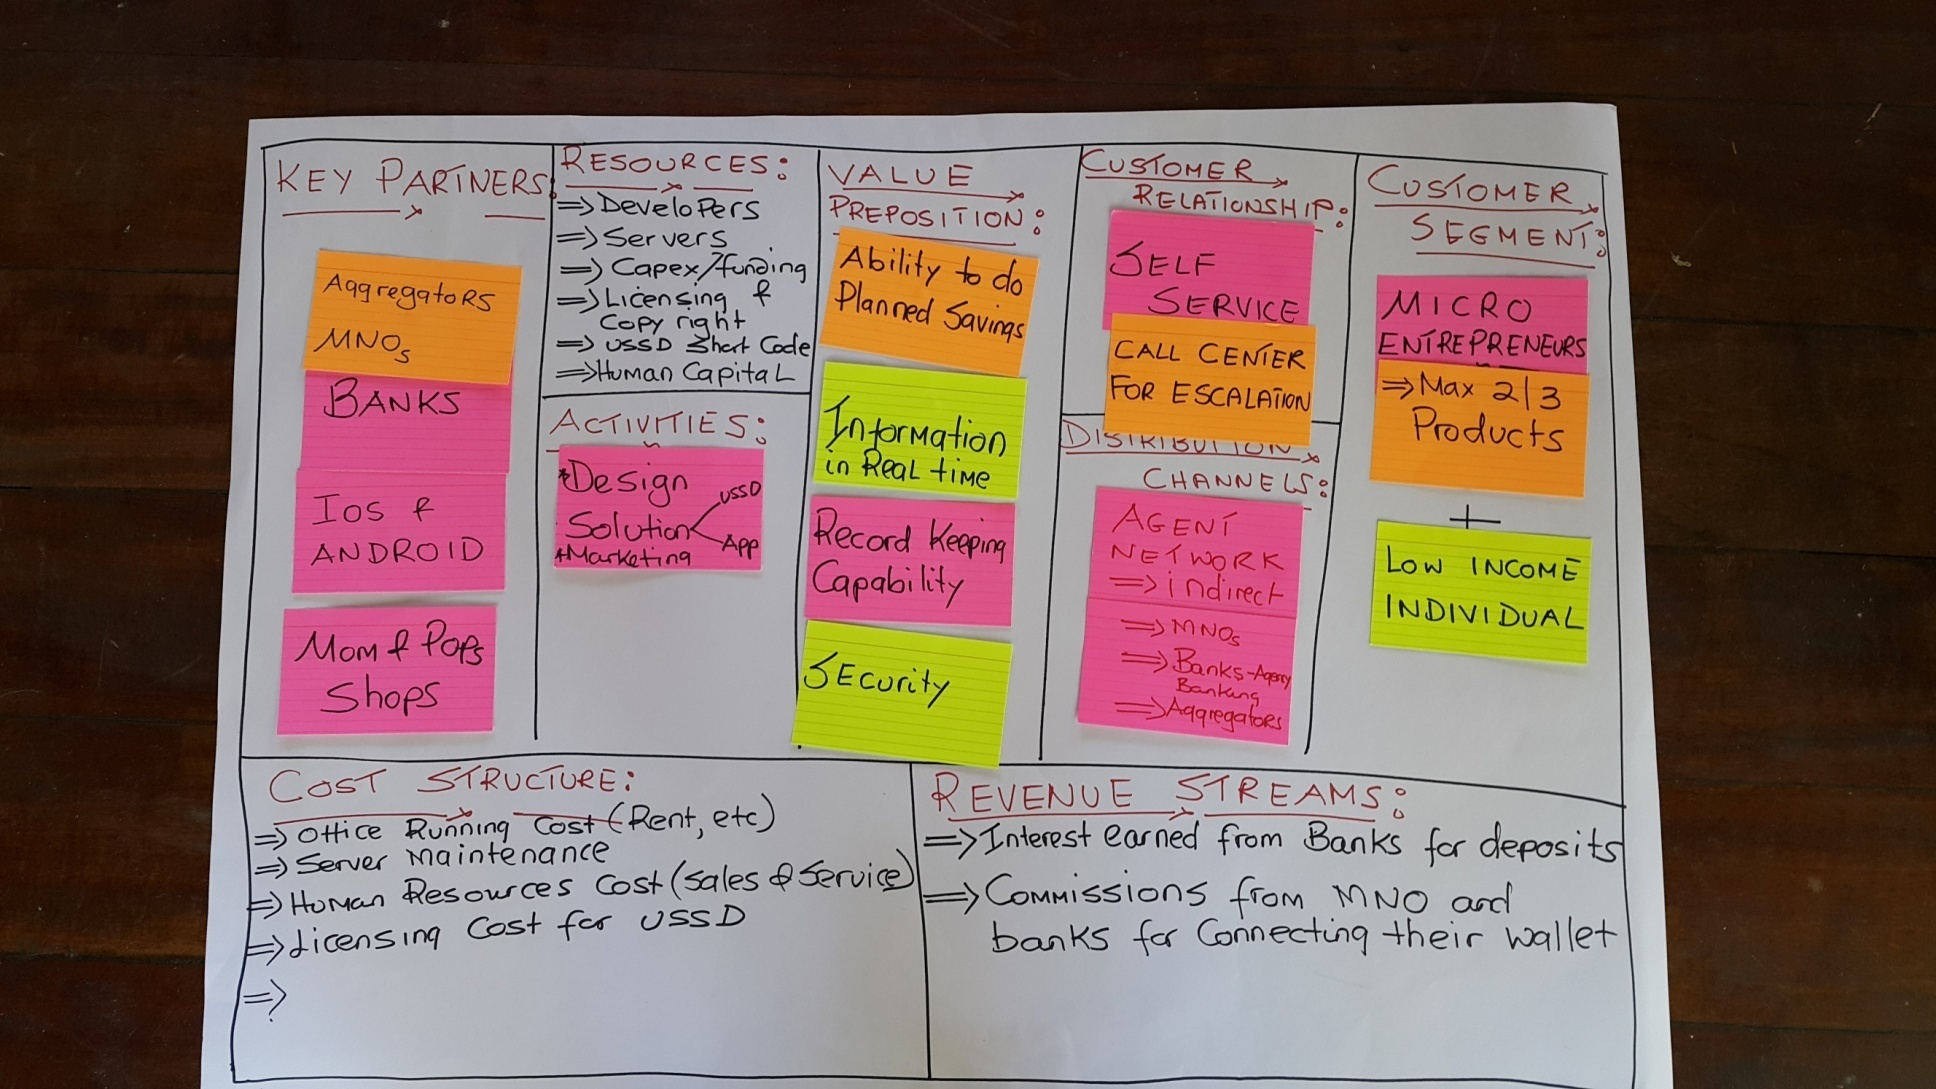 KEY PARTNERS:
Aggregators
MNOs
BANKS
Ios &
ANDROID
Mom & Pops
Shops
RESOURCES:
=> Developers
=> Servers
=> Capex/funding
=> Licensing &
Copy right
=> USSD Short Code
=> Human Capital
ACTIVITIES:
*Design
Solution
USSD
App
*Marketing
VALUE
PREPOSITION:
Ability to do
Planned Savings
Information
in Real time
Record Keeping
Capability
Security
CUSTOMER
RELATIONSHIP:
SELF
SERVICE
CALL CENTER
FOR ESCALATION
DISTRIBUTION
CHANNELS:
AGENT
NETWORK
=> indirect
=> MNOs
=> Banks-Agency
Banking
=> Aggregators
CUSTOMER
SEGMENT:
MICRO
ENTREPRENEURS
=> Max 2/3
Products
+
LOW INCOME
INDIVIDUAL
COST STRUCTURE:
=> Office Running Cost (Rent, etc)
=> Server Maintenance
=> Human Resources Cost (Sales & Service)
=> Licensing Cost for USSD
=>
REVENUE STREAMS:
=> Interest earned from Banks for deposits
=> Commissions from MNO and
banks for Connecting their wallet